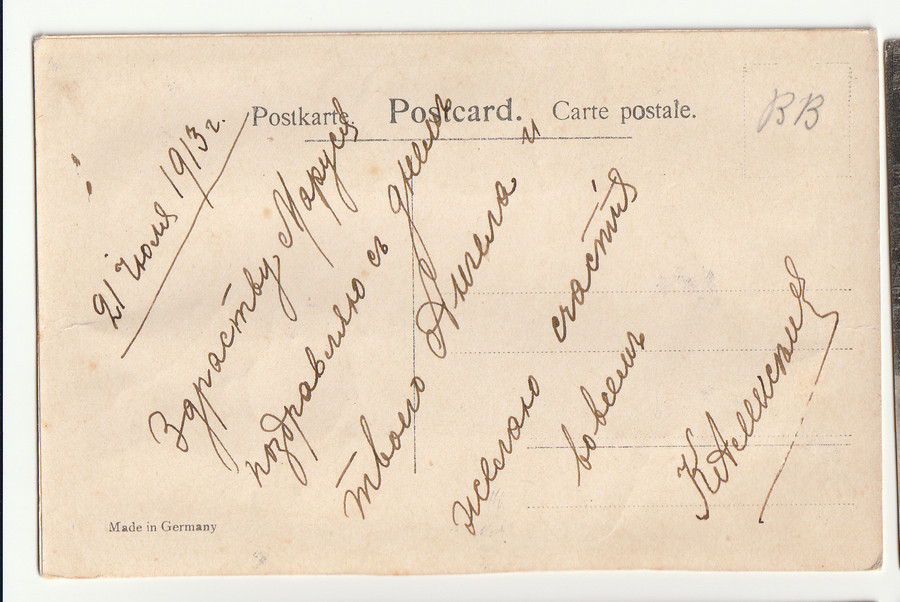 Postkarte. Postcard. Carte postale.
ВВ
21 Июля 1913 г.
Здраству Маруся
поздравляю съ днемъ
твоего Ангела и
желаю счастія
во всемъ
Made in Germany